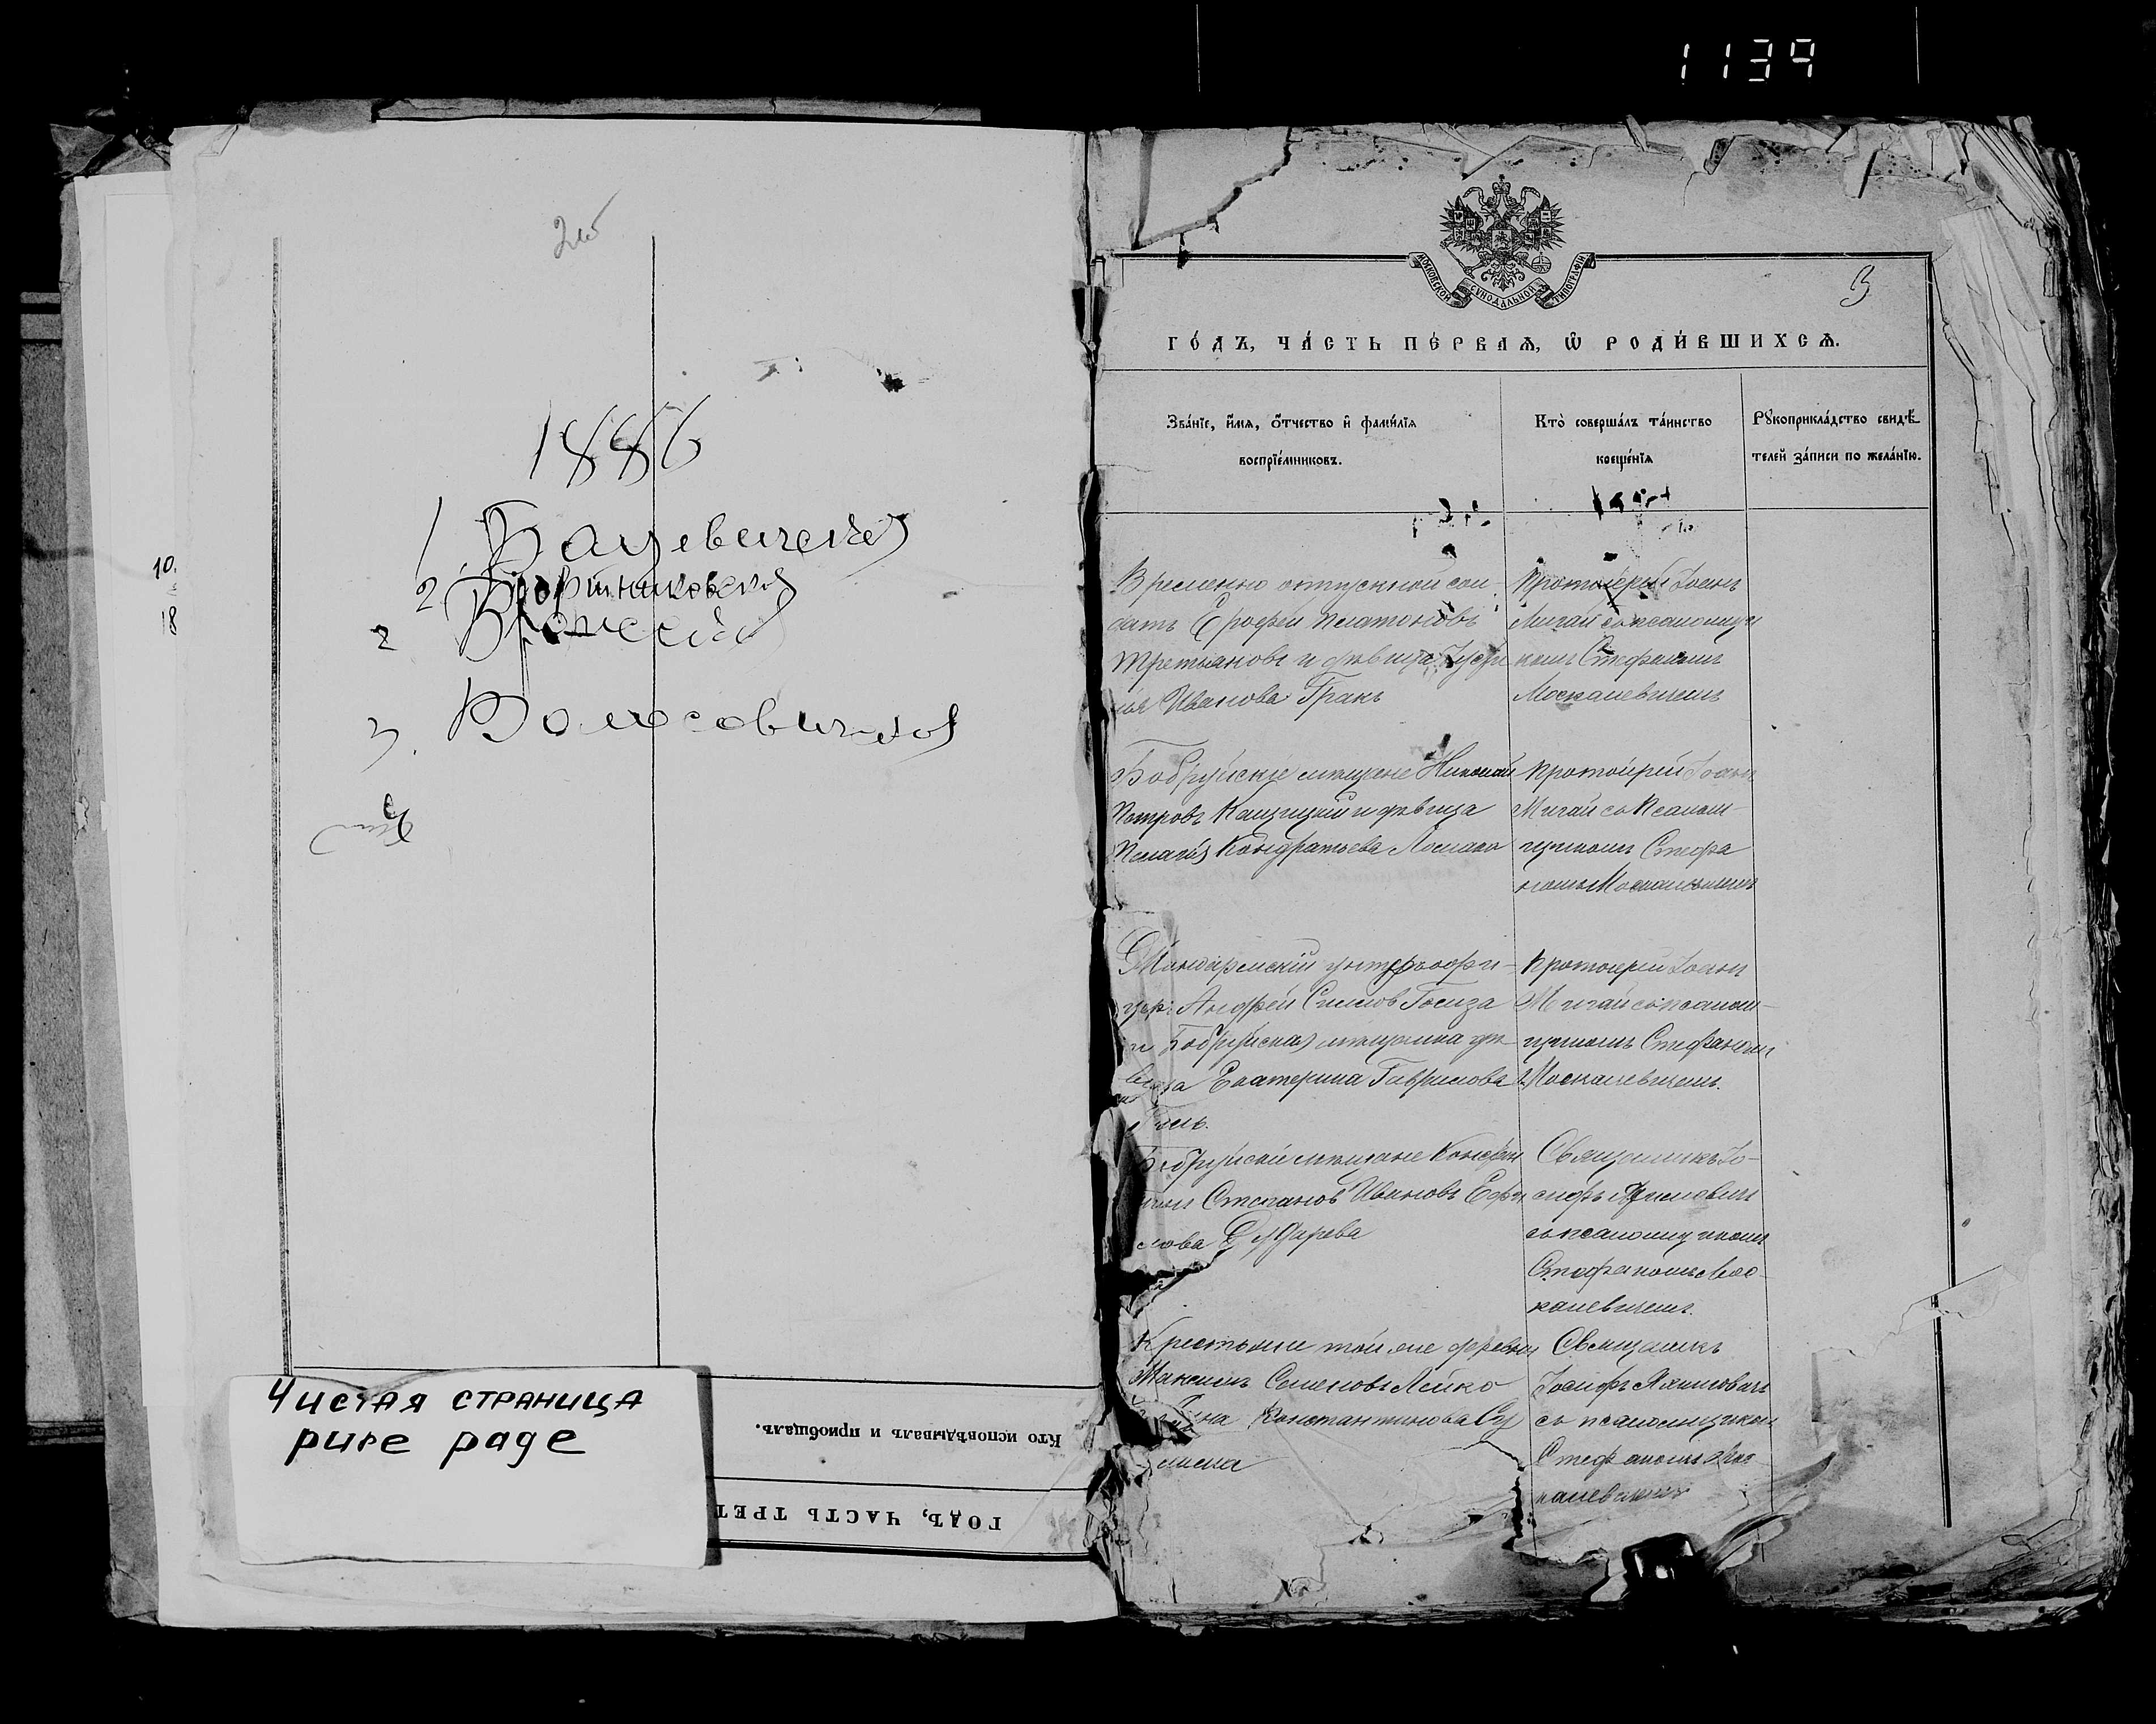 1139
2об
1886
1. Бацевичской
2. Бортниковской
2
3. Волосовичской
10.
18
Чистая страница
pure page
Кто исповѣдывалъ и пріобщалъ.
ГОДЪ, ЧАСТЬ ТРЕТ
МОСКОВСКОЙ СѴНОДАЛЬНОЙ ТИПОГРАФІИ
3
ГО́ДЪ, ЧА́СТЬ ПЕ́РВАѦ, Ѿ РОДИ́ВШИХСѦ.
Зва́нїе, и҆́мѧ, ѻ҆́тчество и҆ фами́лїѧ
воспрїе́мниковъ.
Кто̀ соверша́лъ та́инство
креще́нїѧ
Рꙋкоприкла́дство свидѣ́-
телей за́писи по жела́нїю.
Временно отпускной сол-
датъ Ерофей Платоновъ
Третьяковъ и дѣвица
Иванова Гракъ
Протоіерей Іоаннъ
Мигай съ псаломщи
комъ Стефаномъ
Москалевичемъ
Бобруйскіе мѣщане Николай
Петровъ и дѣвица
Пелагія Кондратьева
Протоіерей Іоаннъ
Мигай съ Псалом-
щикомъ Стефа
номъ Москалевичемъ
Жандармскій унтеръ офи-
церъ Андрей
и Бобруйская мѣщанка дѣ-
вица Екатерина Гаврилова
Протоіерей Іоаннъ
Мигай съ псалом-
щикомъ Стефаномъ
Москалевичемъ.
Бобруйскіе мѣщане
Степановъ Ивановъ
Священникъ Іо-
сифъ Яхимовичъ
съ псаломщикомъ
Стефаномъ Мос-
калевичемъ.
Крестьяне той же деревни
Максимъ Семеновъ Лейко
Константинова
Священникъ
Іосифъ Яхимовичъ
съ псаломщикомъ
Стефаномъ Мос-
калевичемъ